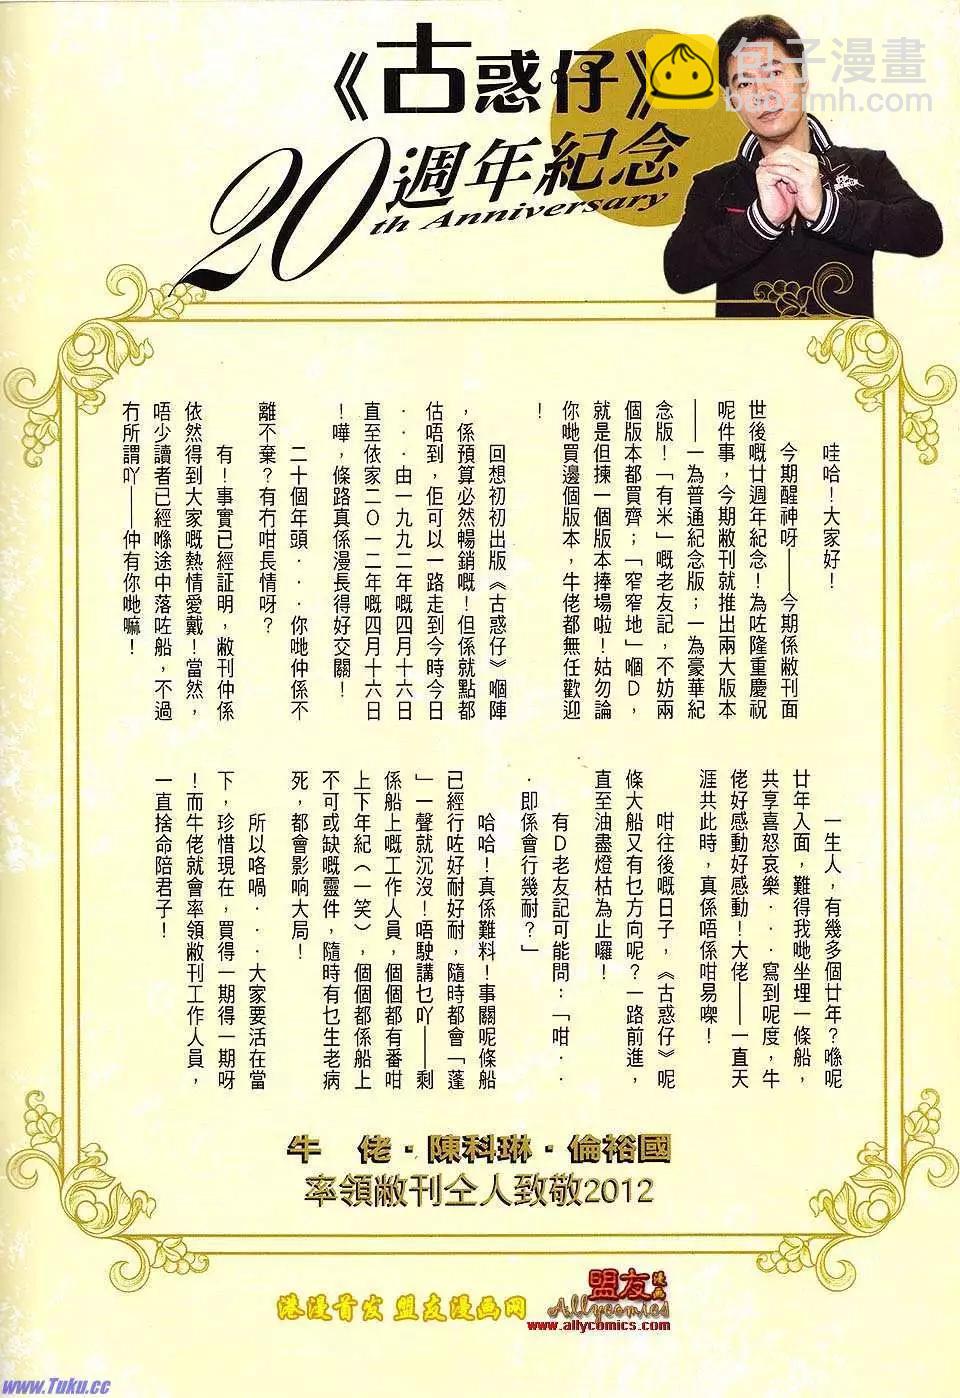 《古惑仔》
20週年紀念
th Anniversary
包子漫畫
baozimh.com
哇哈！大家好！
今期醒神呀——今期係敝刊面
世後嘅廿週年紀念！為咗隆重慶祝
呢件事，今期敝刊就推出兩大版本
——一為普通紀念版；一為豪華紀
念版！「有米」嘅老友記，不妨兩
個版本都買齊；「窄窄地」嗰D，
就是但揀一個版本捧場啦！姑勿論
你哋買邊個版本，牛佬都無任歡迎
！
回想初初出版《古惑仔》嗰陣
，係預算必然暢銷嘅！但係就點都
估唔到，佢可以一路走到今時今日
．．．由一九九二年嘅四月十六日
直至依家二０一二年嘅四月十六日
！嘩，條路真係漫長得好交關！
二十個年頭．．．你哋仲係不
離不棄？有冇咁長情呀？
有！事實已經証明，敝刊仲係
依然得到大家嘅熱情愛戴！當然，
唔少讀者已經喺途中落咗船，不過
冇所謂吖——仲有你哋嘛！
一生人，有幾多個廿年？喺呢
廿年入面，難得我哋坐埋一條船，
共享喜怒哀樂．．．寫到呢度，牛
佬好感動好感動！大佬——一直天
涯共此時，真係唔係咁易㗎！
咁往後嘅日子，《古惑仔》呢
條大船又有乜方向呢？一路前進，
直至油盡燈枯為止囉！
有D老友記可能問：「咁．．
．即係會行幾耐？」
哈哈！真係難料！事關呢條船
已經行咗好耐好耐，隨時都會「蓬
」一聲就沉沒！唔駛講乜吖——剩
係船上嘅工作人員，個個都有番咁
上下年紀（一笑），個個都係船上
不可或缺嘅靈件，隨時有乜生老病
死，都會影响大局！
所以咯喎．．．大家要活在當
下，珍惜現在，買得一期得一期呀
！而牛佬就會率領敝刊工作人員，
一直捨命陪君子！
牛　佬・陳科琳・倫裕國
率領敝刊仝人致敬2012
港漫首发 盟友漫画网
盟友漫画
Allycomics
www.allycomics.com
www.Tuku.cc